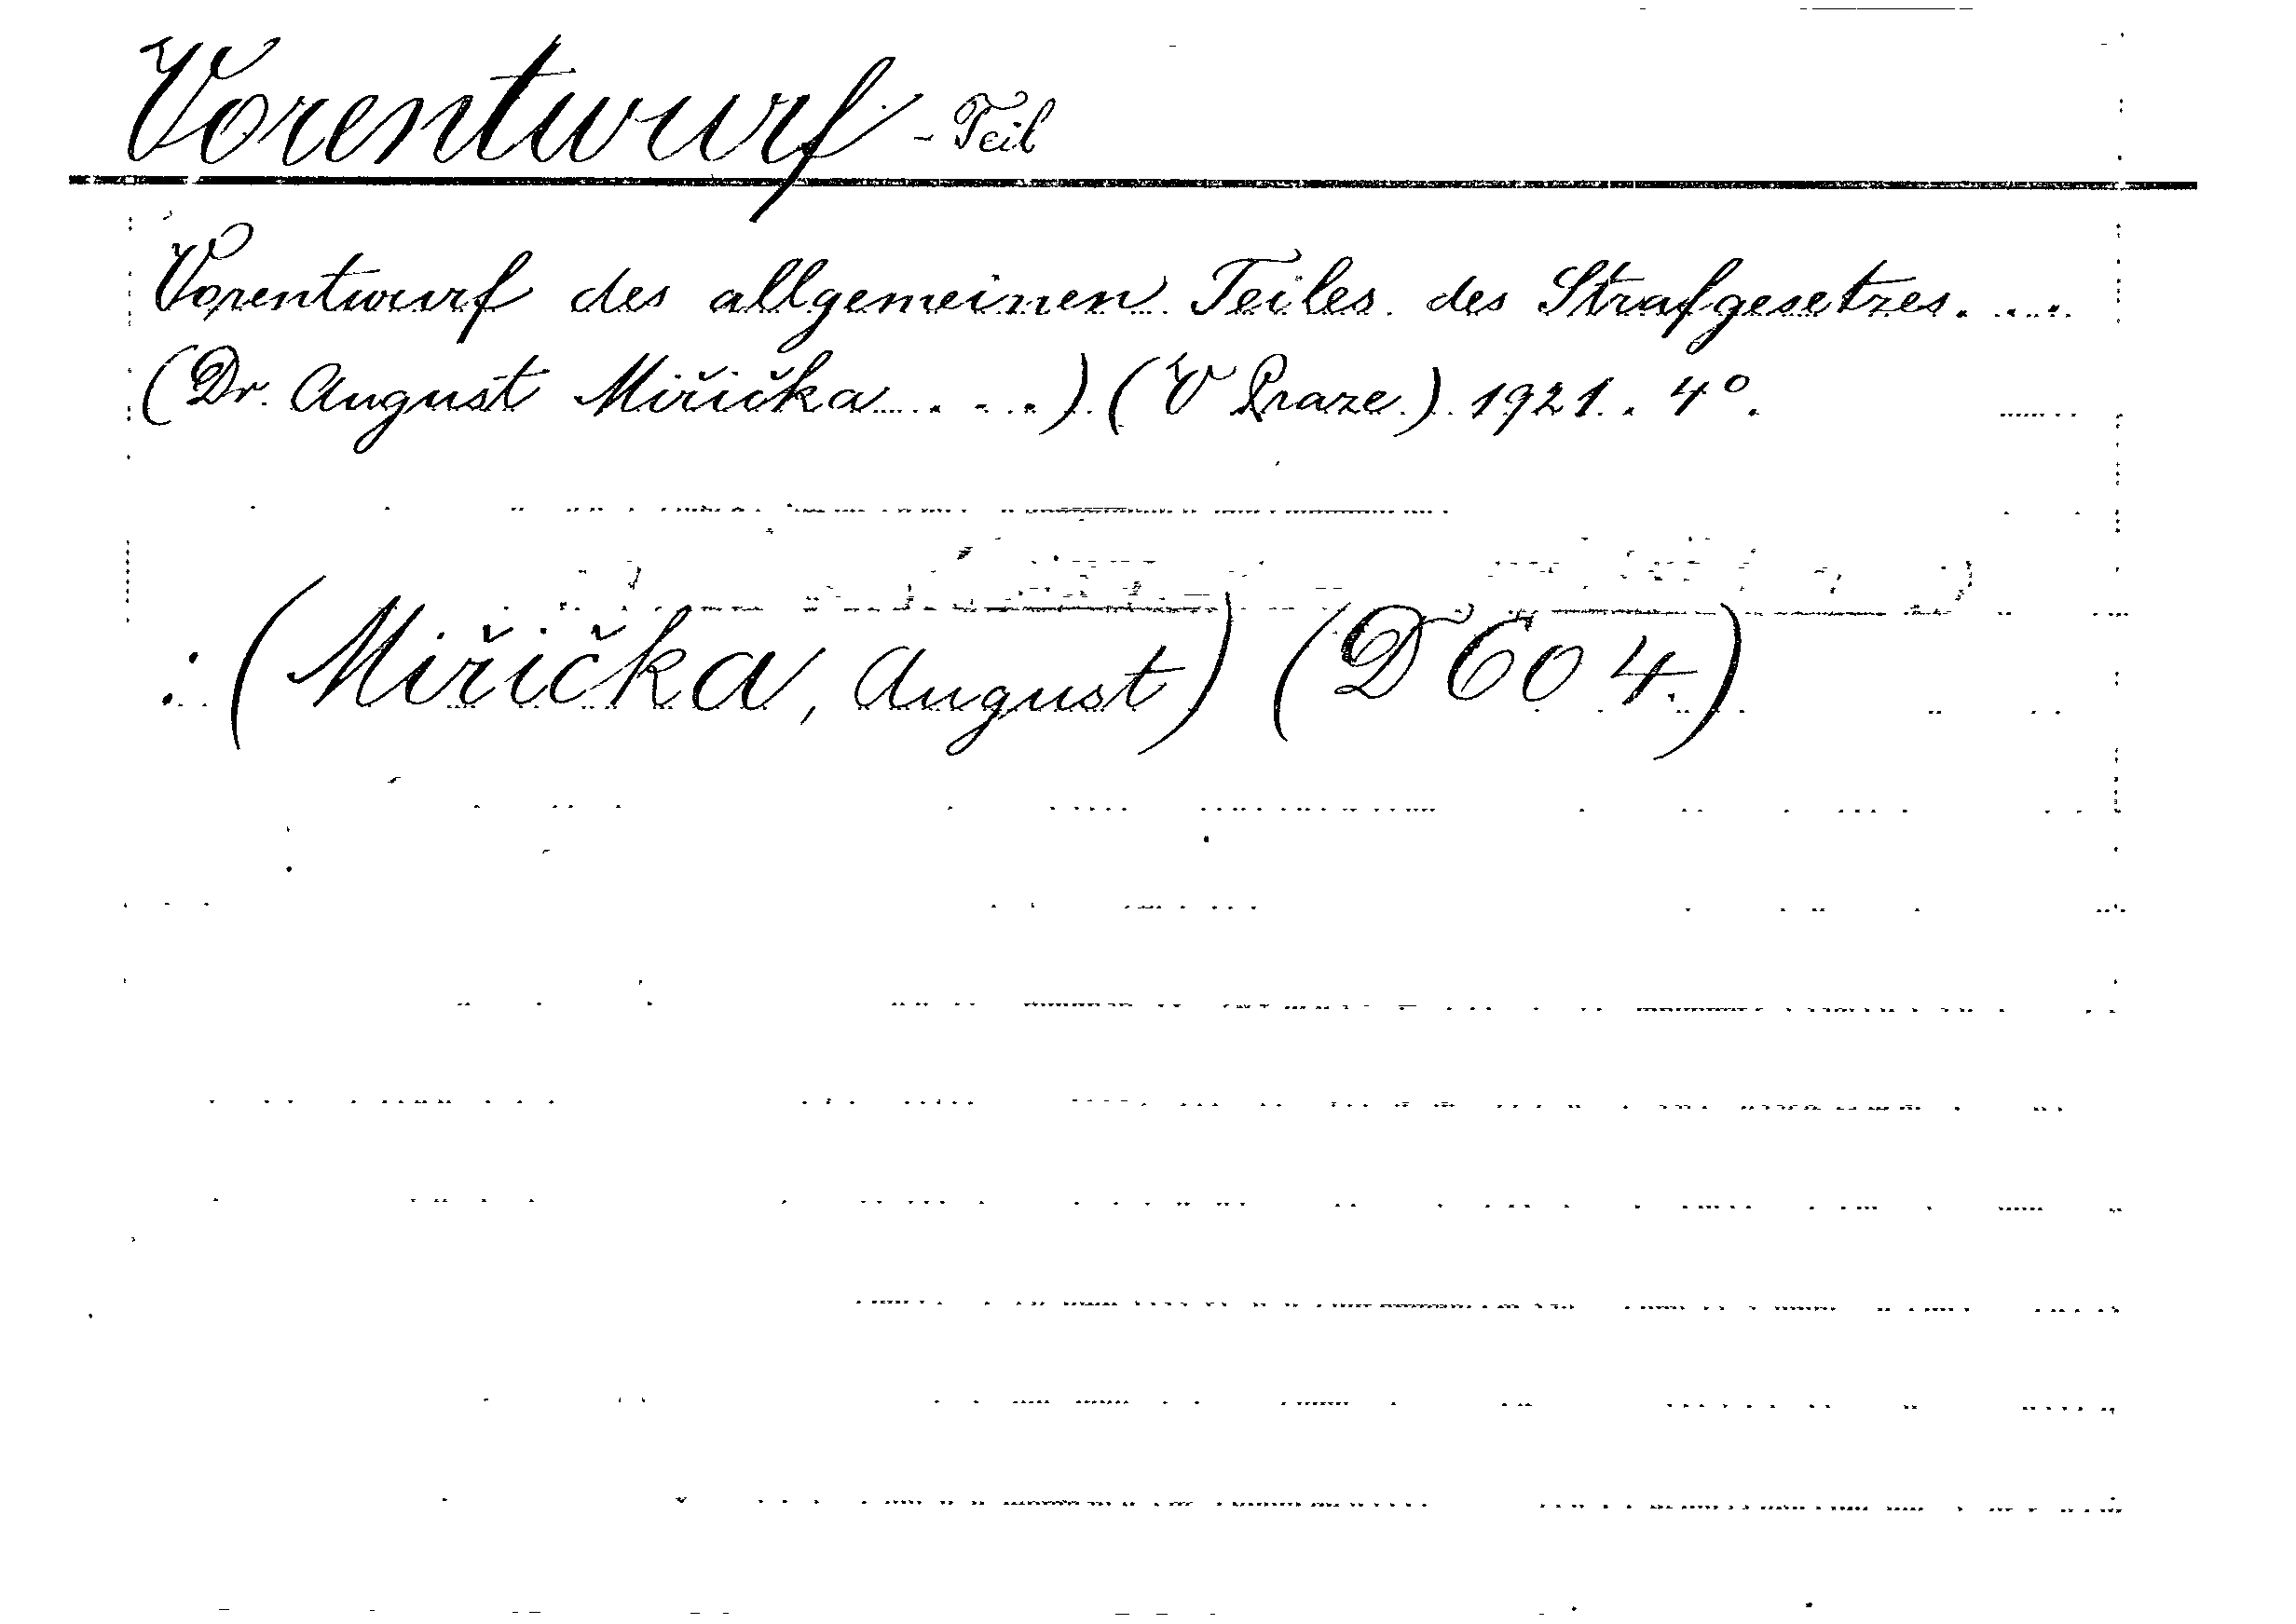 Vorentwurf - Teil
Vorentwurf des allgemeinen Teiles des Strafgesetzes. ...
(Dr. August Miřička ....) (V Praze.) 1921. 4°.
: (Miřička, August) (D 604.)